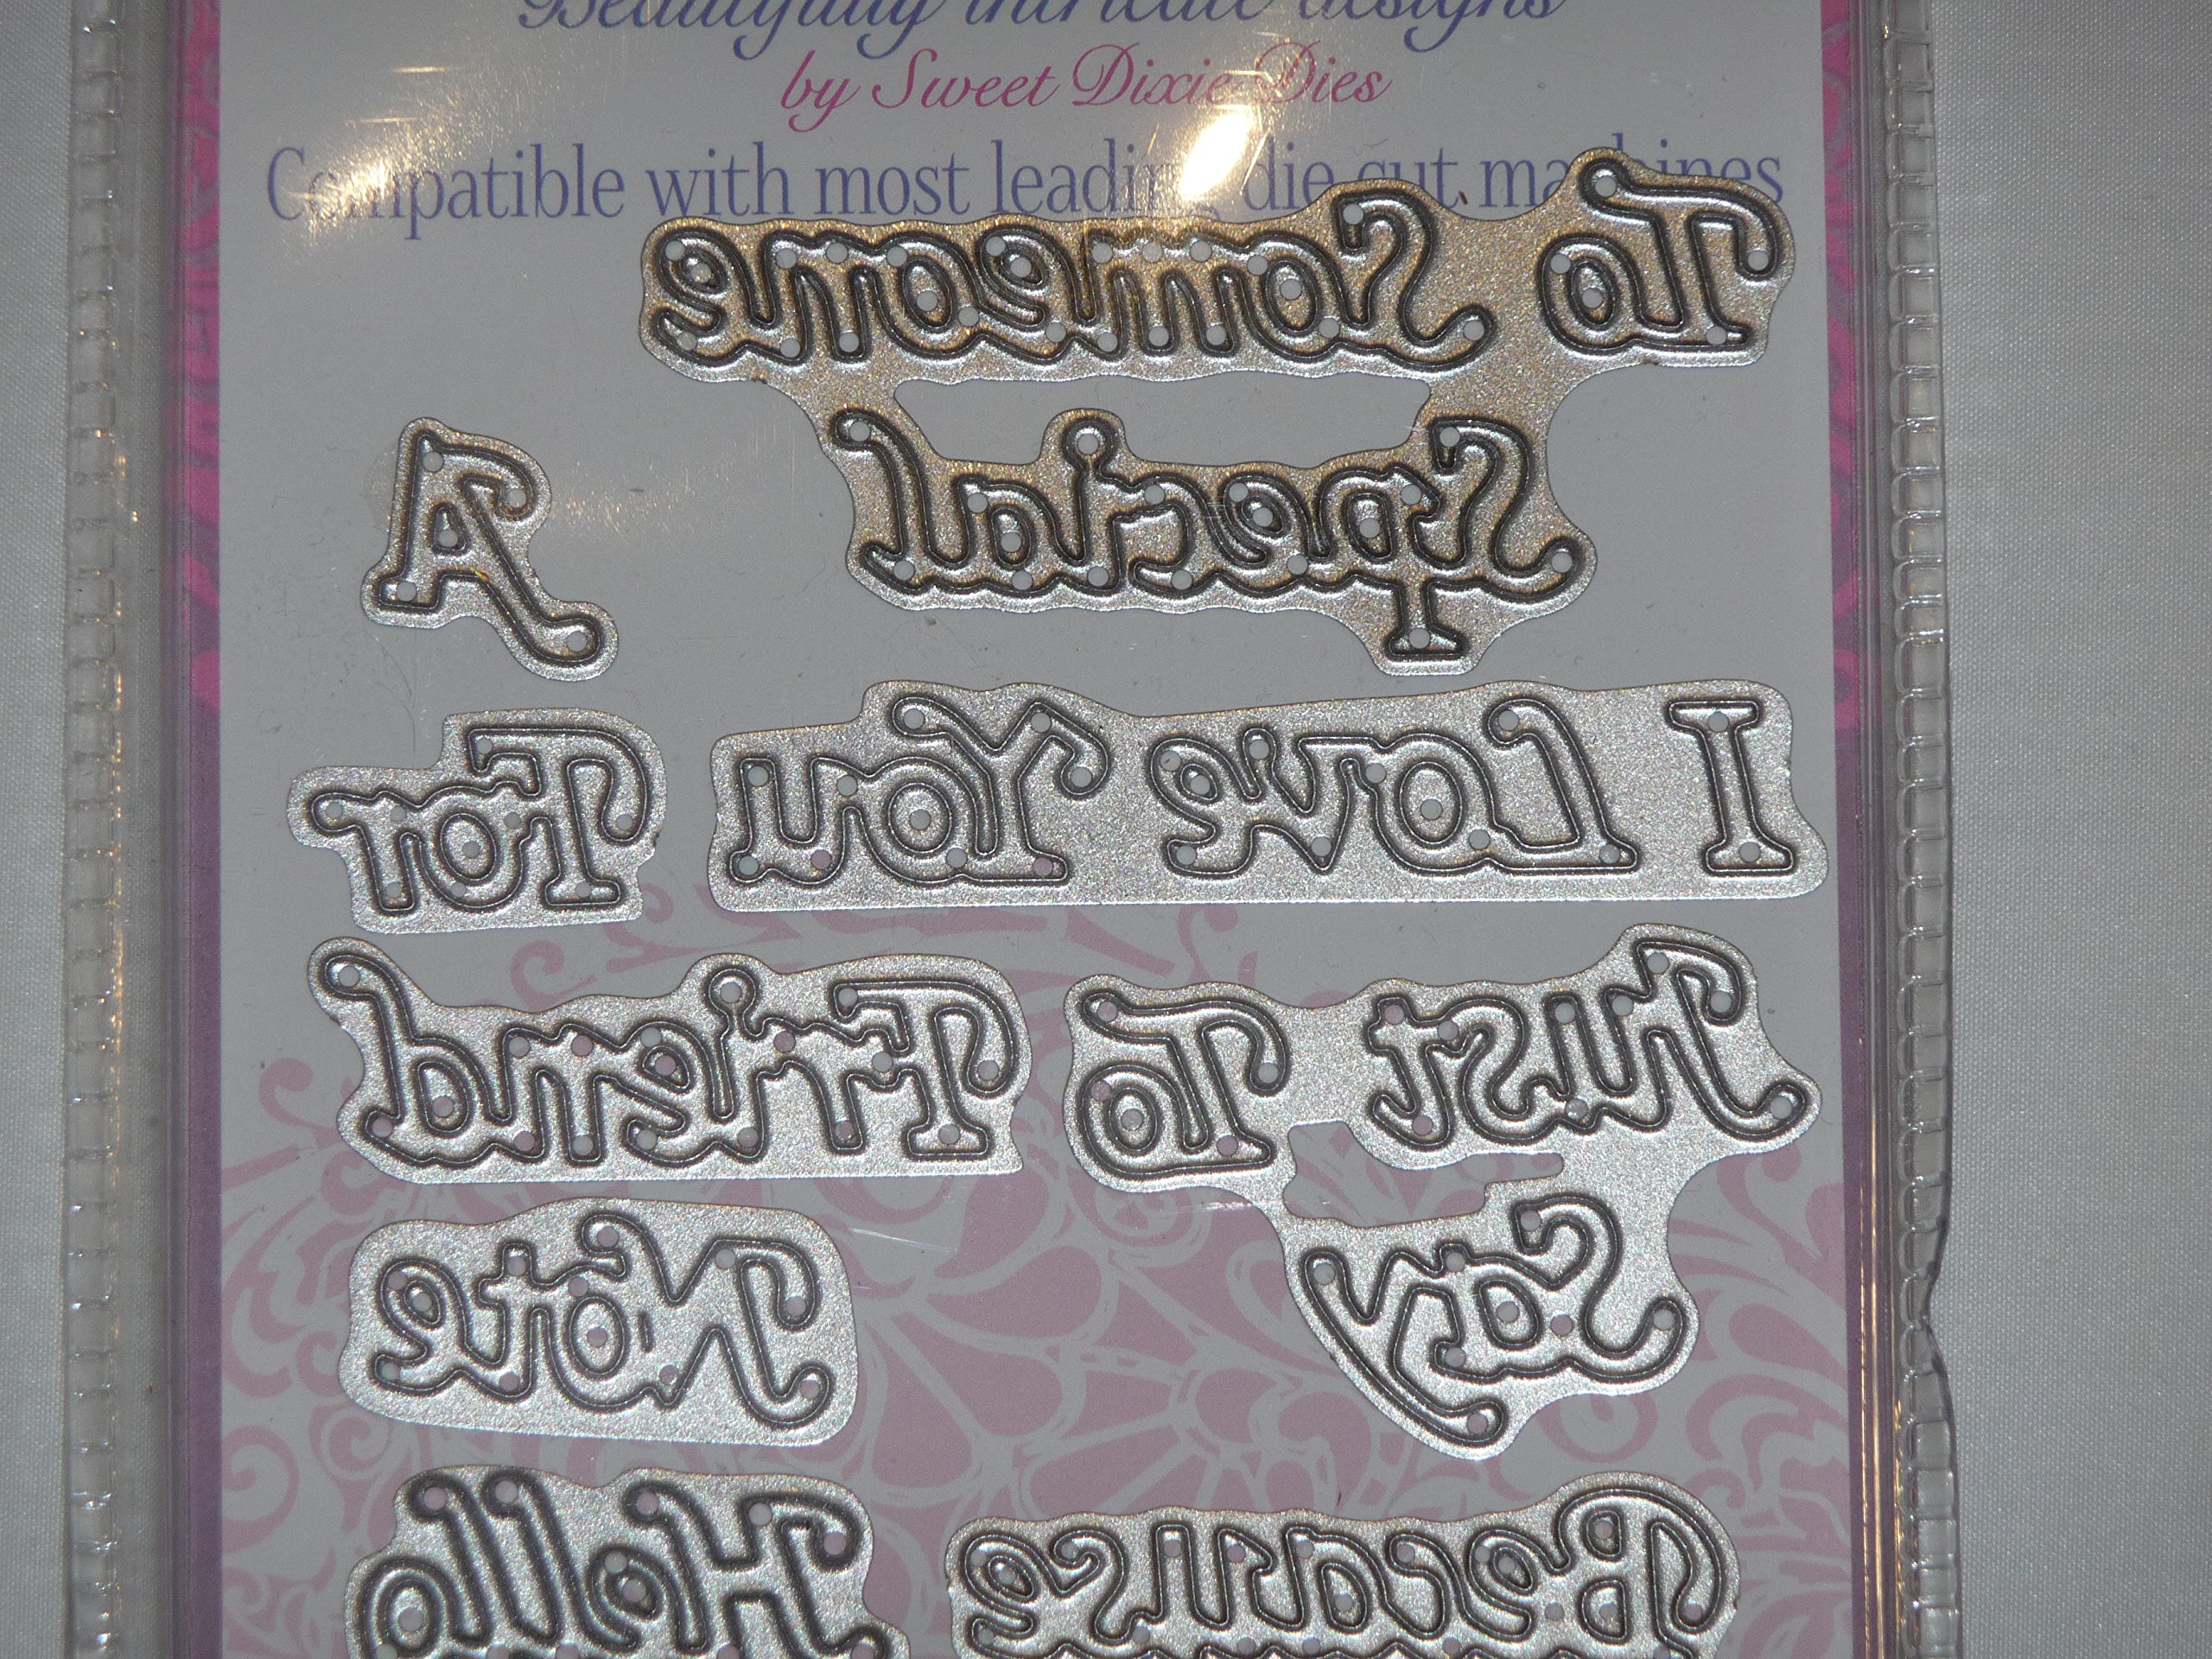 Beautifully intricate designs
by Sweet Dixie Dies
Compatible with most leading die cut machines
To Someone
Special
A
I Love You
For
Just To
Say
Friend
Note
Because
Hello